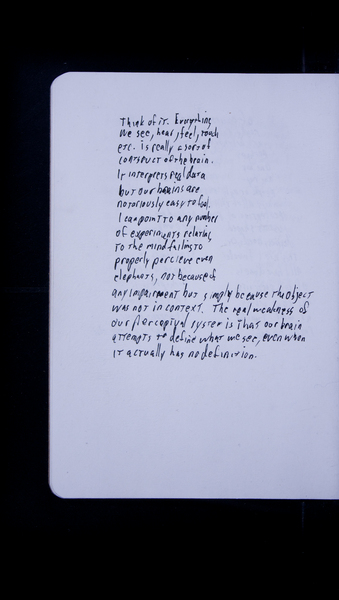 Think of it. Everything
we see, hear, feel, touch
etc. is really a sort of
construct of the brain.
It interprets real data
but our brains are
notoriously easy to fool.
I can point to any number
of experiments relating
to the mind failing to
properly percieve even
elephants, not because of
any impairment but simply because the object
was not in context. The real weakness of
our perceptual system is that our brain
attempts to define what we see, even when
it actually has no definition.